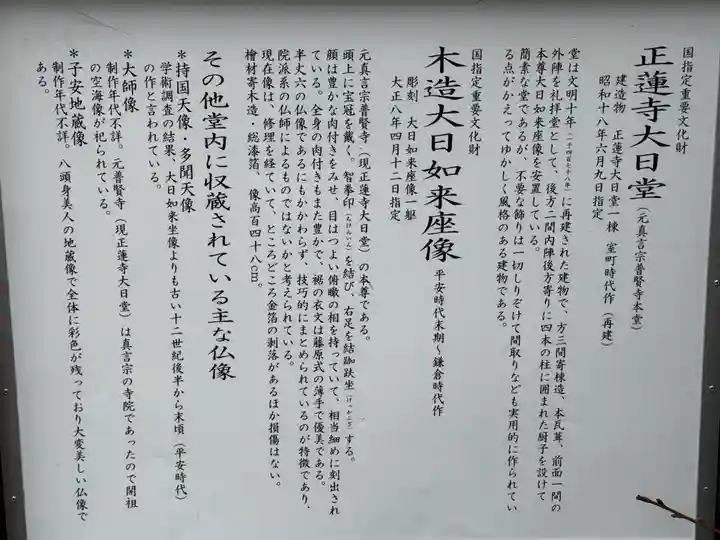 国指定重要文化財
正蓮寺大日堂（元真言宗普賢寺本堂）
建造物　正蓮寺大日堂一棟　室町時代作（再建）
昭和十八年六月九日指定
堂は文明十年（一千四百七十八年）に再建された建物で、方三間寄棟造、本瓦葺、前面一間の
外陣を礼拝堂として、後方二間内陣後方寄りに四本の柱に囲まれた厨子を設けて
本尊大日如来座像を安置している。
簡素な堂であるが、不要な飾りは一切しりぞけて間取りなども実用的に作られてい
る点がかえってゆかしく風格のある建物である。
国指定重要文化財
木造大日如来座像　平安時代末期～鎌倉時代作
彫刻　大日如来座像一躯
大正八年四月十二日指定
元真言宗普賢寺（現正蓮寺大日堂）の本尊である。
頭上に宝冠を戴く。智拳印（ちけんいん）を結び、右足を結跏趺坐（けっかふざ）する。
顔は豊かな肉付きをみせ、目はつよい俯瞰の相を持っていて、相当細めに刻出され
ている。全身の肉付きもまた豊かで、裾の衣文は藤原式の薄手で優美である。
半丈六の仏像であるにもかかわらず、技巧的にまとめられているのが特徴であり、
院派系の仏師によるものではないかと考えられている。
現在像は、修理を経ていて、ところどころ金箔の剥落があるほか損傷はない。
檜材寄木造・総漆箔、像高百四十八cm。
その他堂内に収蔵されている主な仏像
＊持国天像・多聞天像
学術調査の結果、大日如来坐像よりも古い十二世紀後半から末頃（平安時代）
の作と言われている。
＊大師像
制作年代不詳。元普賢寺（現正蓮寺大日堂）は真言宗の寺院であったので開祖
の空海像が祀られている。
＊子安地蔵像
制作年代不詳。八頭身美人の地蔵像で全体に彩色が残っており大変美しい仏像で
ある。